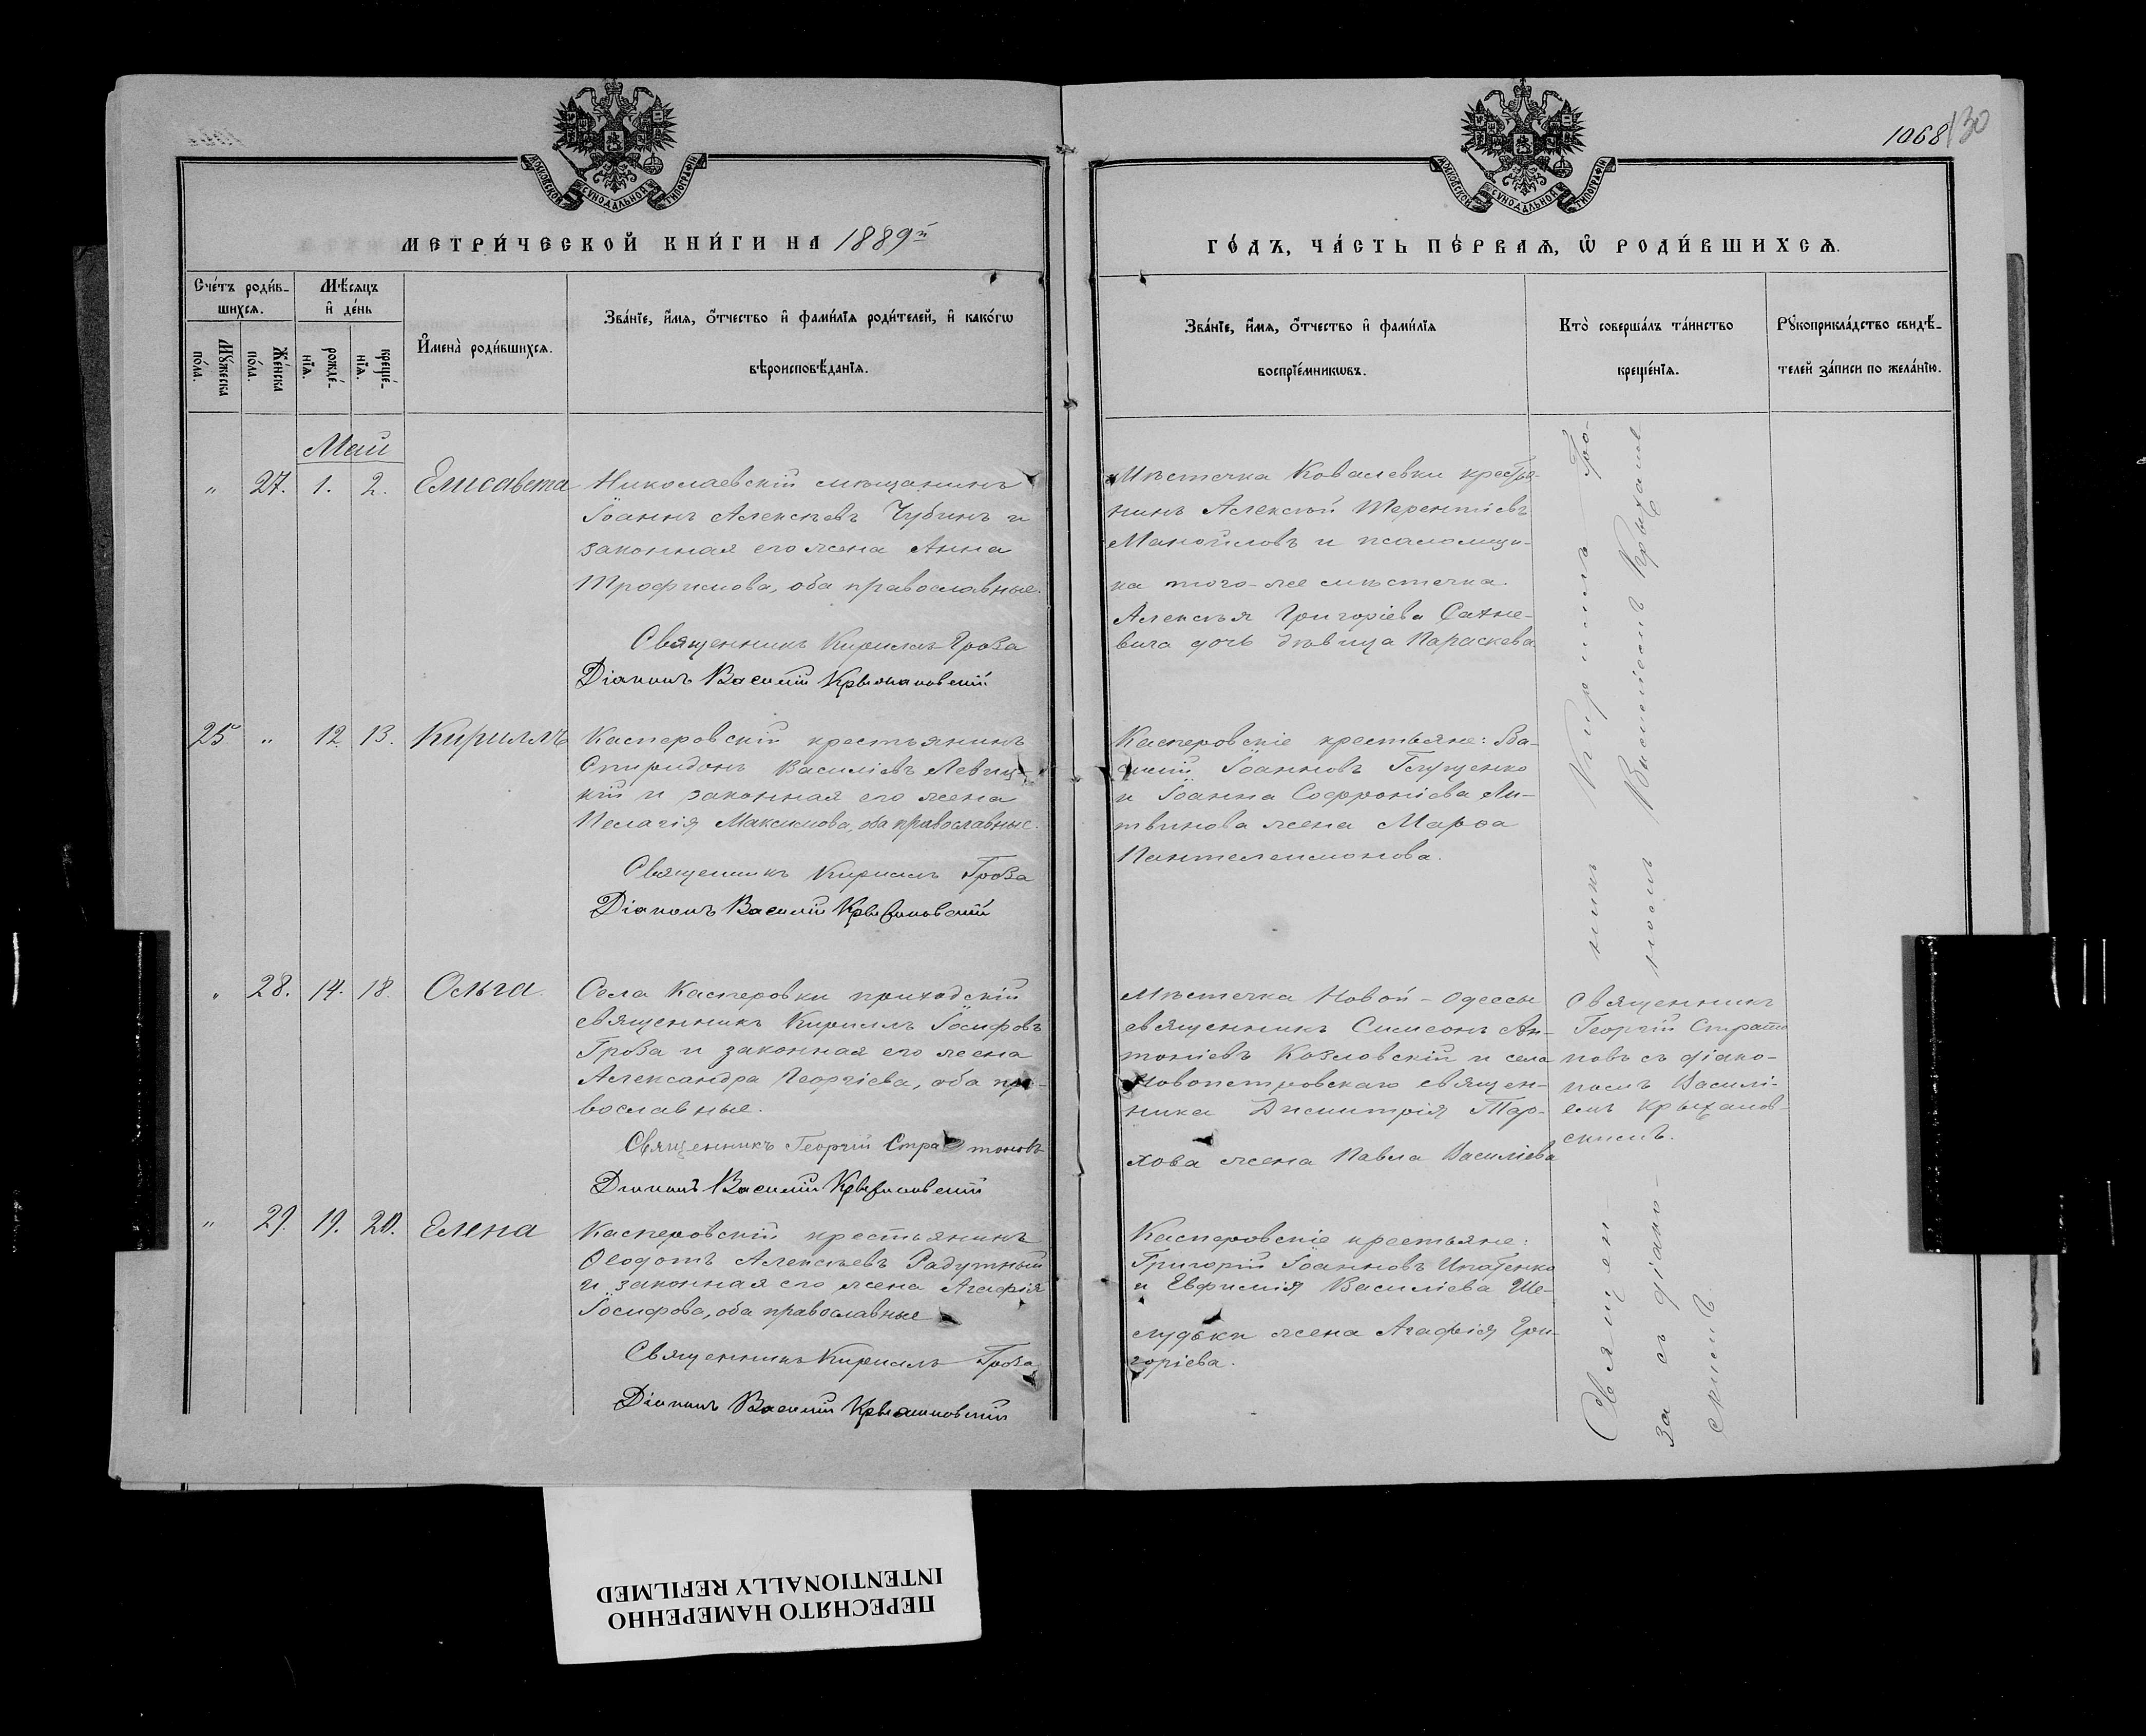 1068
130
МОСКОВСКОЙ СѴНОДАЛЬНОЙ ТИПОГРАФІИ
МОСКОВСКОЙ СѴНОДАЛЬНОЙ ТИПОГРАФІИ
МЕТРИ́ЧЕСКОЙ КНИ́ГИ НА 1889й
ГО́ДЪ, ЧА́СТЬ ПЕ́РВАѦ, Ѽ РОДИ́ВШИХСѦ.
Сче́тъ роди́в-
шихсѧ.
Мꙋ́жеска
по́ла.
Же́нска
по́ла.
Мѣ́сѧцъ
и҆ де́нь
рожде́-
нїѧ.
креще́-
нїѧ.
И҆мена̀ роди́вшихсѧ.
Зва́нїе, и҆́мѧ, о҆́тчество и҆ фами́лїѧ роди́телей, и҆ како́гѡ
вѣроисповѣ́данїѧ.
Зва́нїе, и҆́мѧ, о҆́тчество и҆ фами́лїѧ
воспрїе́мникѡвъ.
Кто̀ соверша́лъ та́инство
креще́нїѧ.
Рꙋкоприкла́дство свидѣ́-
телей за́писи по жела́нїю.
Май
" 27. 1. 2. Елисавета
Николаевскій мѣщанинъ
Іоаннъ Алексѣевъ Чубинъ и
законная его жена Анна
Трофимова, оба православные.
Священникъ Кириллъ Гроза
Діаконъ Василій Крыжановскій
Мѣстечка Ковалевки крестья-
нинъ Алексѣй Терентіевъ
Манойловъ и псаломщи-
ка того-же мѣстечка
Алексѣя Григоріева Сахне-
вича дочь дѣвица Параскева
25. " 12. 13. Кириллъ
Касперовскій крестьянинъ
Спиридонъ Василіевъ Левиц-
кій и законная его жена
Пелагія Максимова, оба православные.
Священникъ Кириллъ Гроза
Діаконъ Василій Крыжановскій
Касперовскіе крестьяне: Ва-
силій Іоанновъ
и Іоанна Софроніева Ли-
твинова жена Марѳа
Пантелеимонова.
" 28. 14. 18. Ольга
Села Касперовки приходскій
священникъ Кириллъ Іосифовъ
Гроза и законная его жена
Александра Георгіева, оба пра-
вославные.
Священникъ Георгій Стратоновъ
Діаконъ Василій Крыжановскій
Мѣстечка Новой-Одессы
священникъ Симеонъ Ан-
тоніевъ Козловскій и села
Новопетровскаго священ-
ника Димитрія Тор-
хова жена Павла Василіева
Священникъ
Георгій Страто
новъ съ діако-
номъ Василі-
емъ Крыжанов-
скимъ.
" 29. 19. 20. Елена
Касперовскій крестьянинъ
Ѳеодотъ Алексѣевъ Радутный
и законная его жена Агафія
Іосифова, оба православные
Священникъ Кириллъ Гроза
Діаконъ Василій Крыжановскій
Касперовскіе крестьяне:
Григорій Іоанновъ Ипатенко
и Евфимія Василіева Ше-
лудьки жена Агафія Гри-
горіева.
Священникъ Кириллъ Гро-
за съ діакономъ Василіемъ Крыжанов-
скимъ.
ПЕРЕСНЯТО НАМЕРЕННО
INTENTIONALLY REFILMED